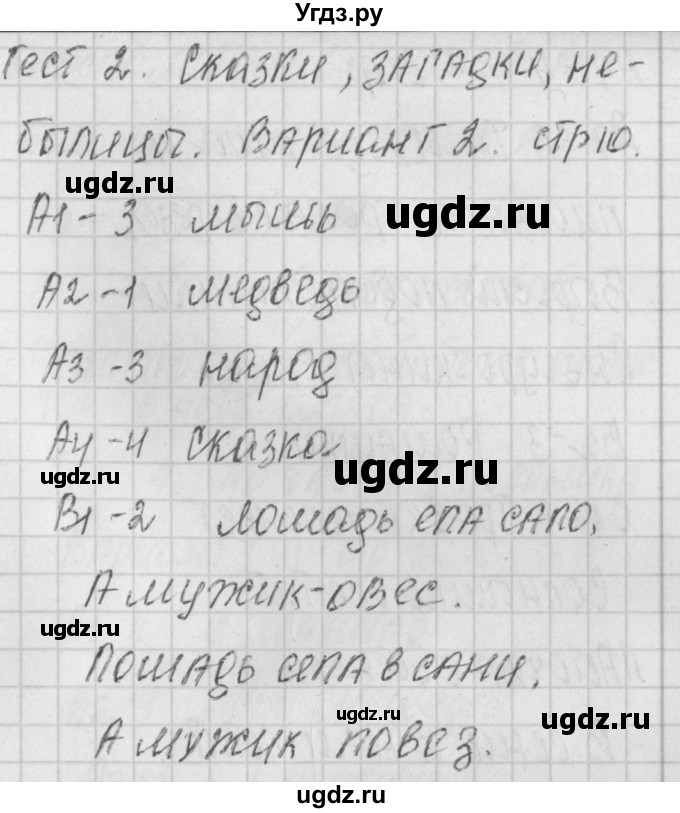 Угдз.ру
Тест 2. Сказки, загадки, не-
былицы. Вариант 2. стр 10.
ugdz.ru
ugdz.ru
А1 - 3 мышь
А2 - 1 медведь
А3 - 3 народ
А4 - 4 сказка
ugdz.ru
ugdz.ru
В1 - 2 Лошадь ела сало,
А мужик - овес.
ugdz.ru
Лошадь села в сани,
ugdz.ru
ugdz.ru
А мужик повез.
ugdz.ru